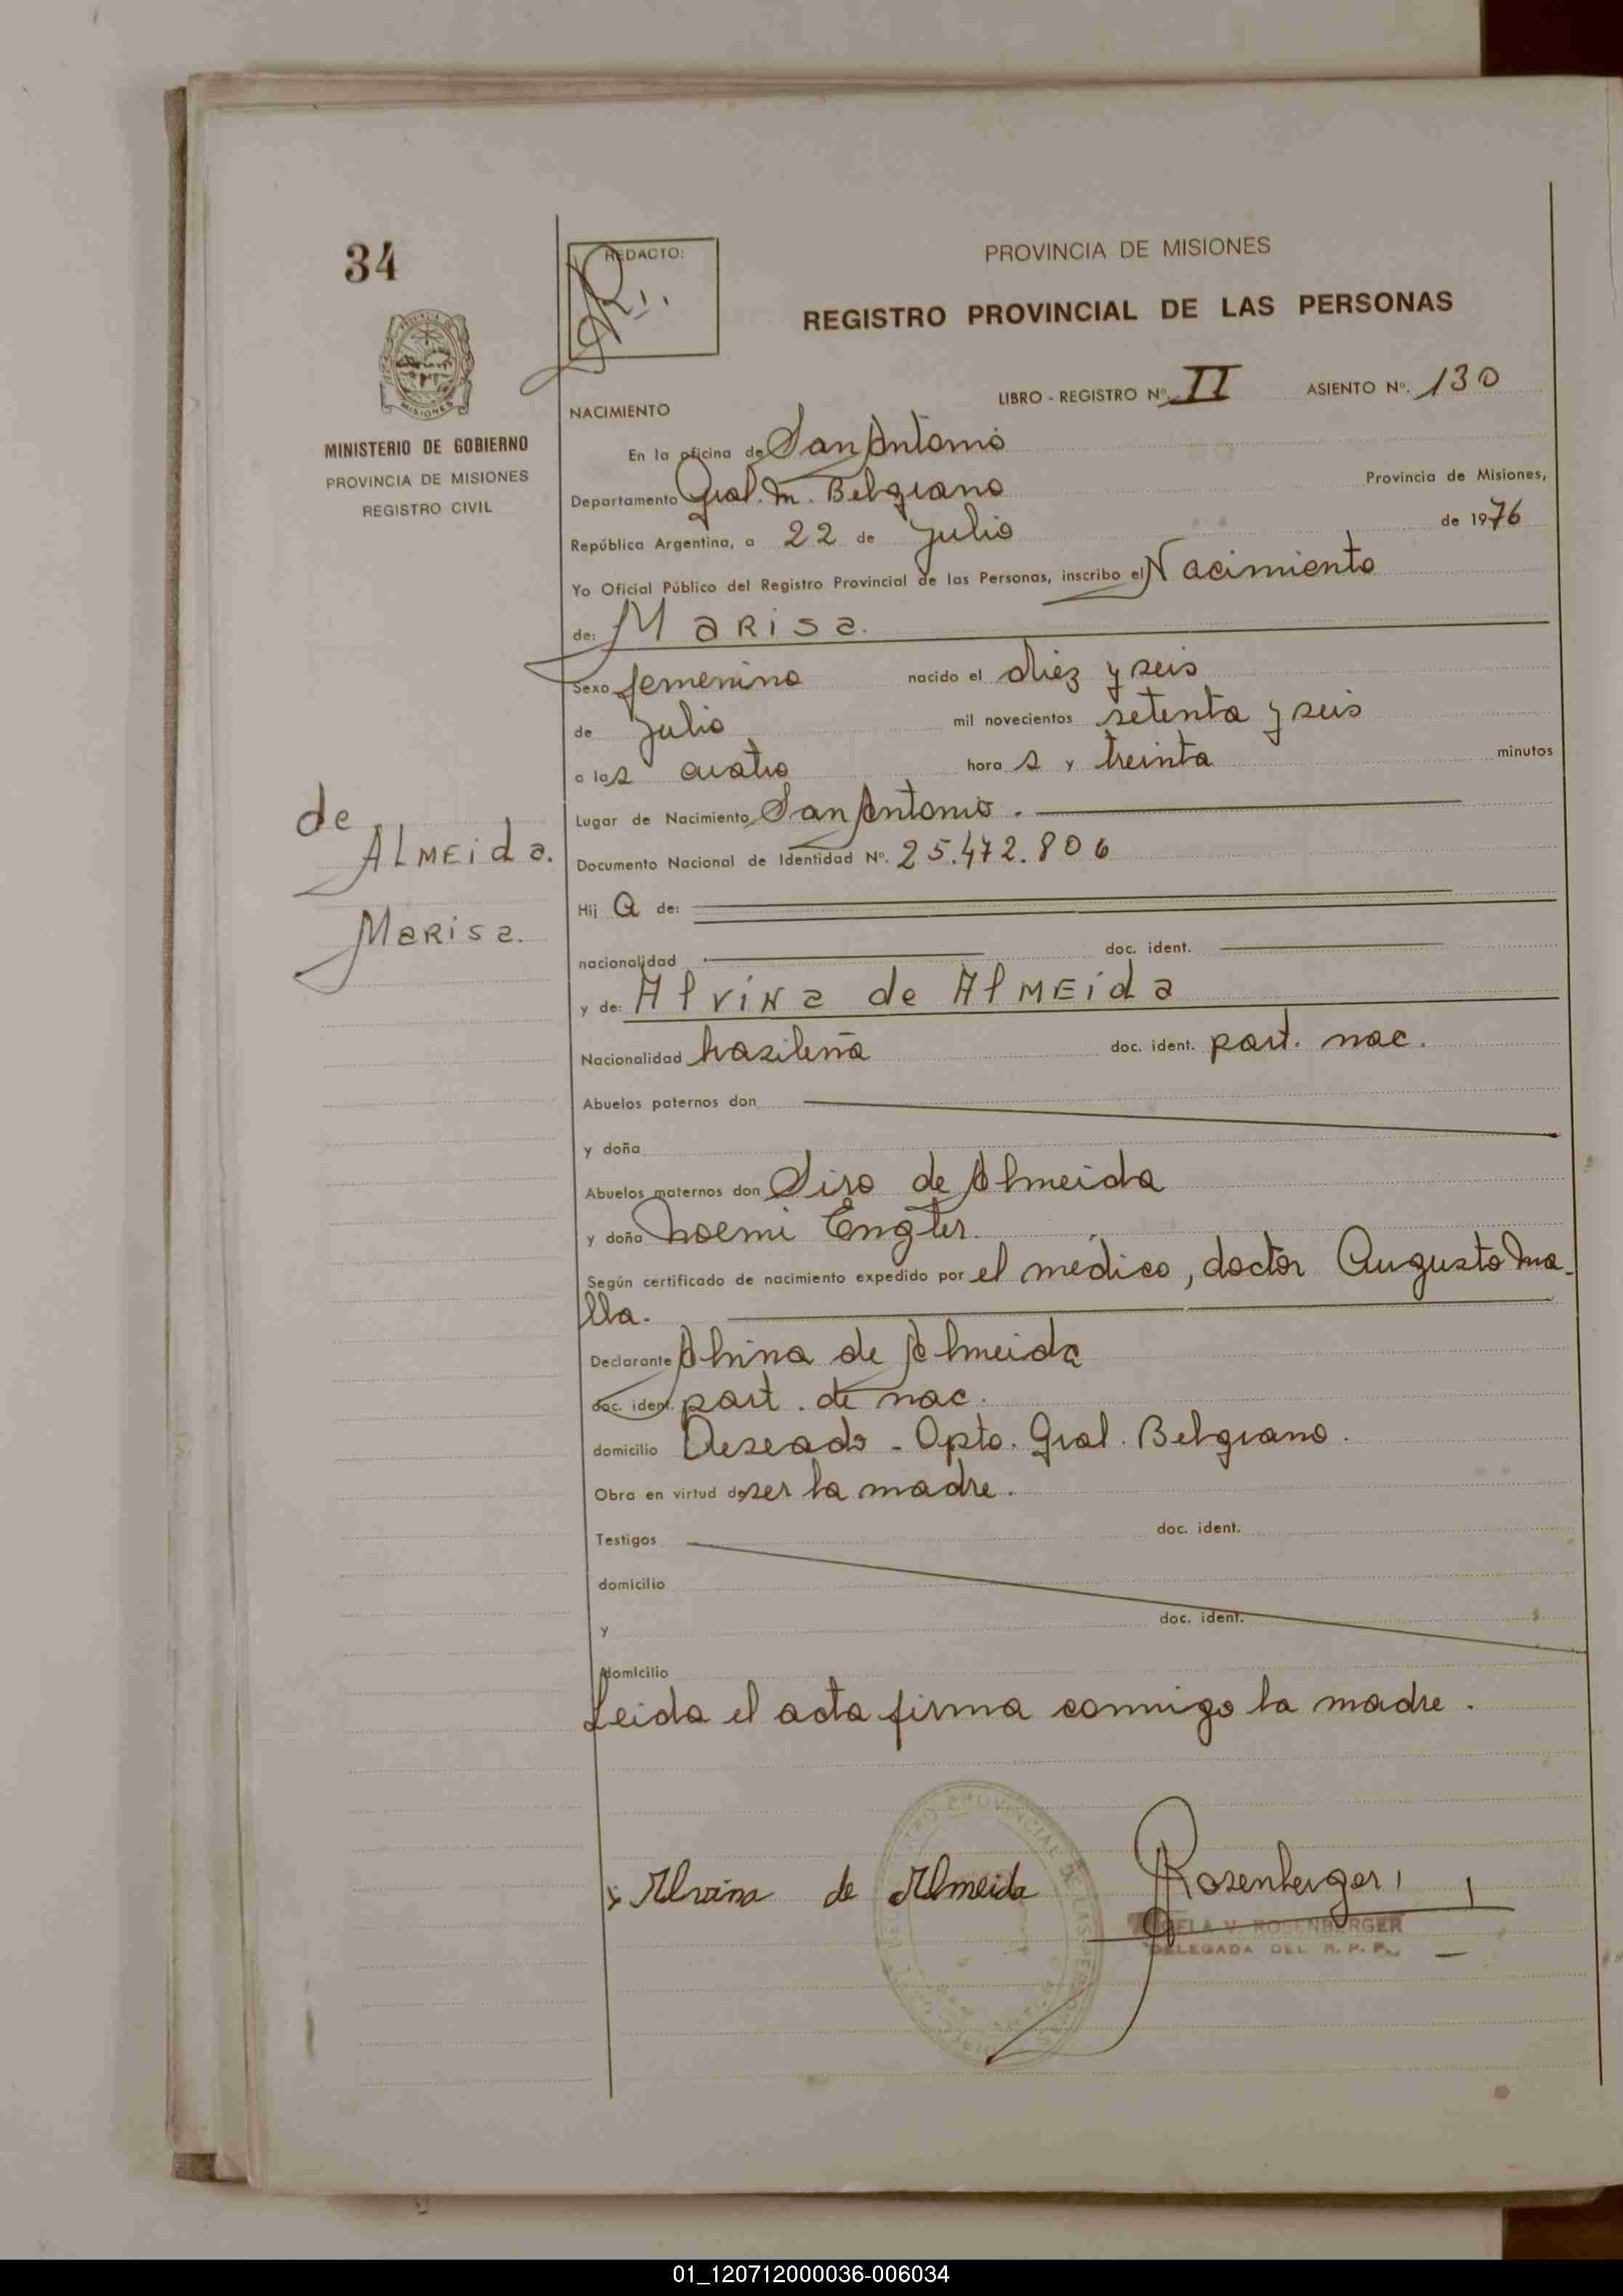 34
REDACTO:
PROVINCIA DE MISIONES
REGISTRO PROVINCIAL DE LAS PERSONAS
MISIONES
MINISTERIO DE GOBIERNO
PROVINCIA DE MISIONES
REGISTRO CIVIL
LIBRO - REGISTRO Nº. II ASIENTO Nº. 130
NACIMIENTO
En la oficina de San Antonio
Departamento Gral. M. Belgrano Provincia de Misiones,
República Argentina, a 22 de julio de 1976
Yo Oficial Público del Registro Provincial de las Personas, inscribo el Nacimiento
de: Marisa.
Sexo femenino nacido el diez y seis
de julio mil novecientos setenta y seis
a las cuatro hora s y treinta minutos
Lugar de Nacimiento San Antonio.
Documento Nacional de Identidad Nº. 25.472.806
Hij a de:
nacionalidad doc. ident.
y de: Alvina de Almeida
Nacionalidad brasileña doc. ident. part. nac.
Abuelos paternos don
y doña
Abuelos maternos don Siro de Almeida
y doña Noemi Engler.
Según certificado de nacimiento expedido por el médico, doctor Augusto Ma-
lla.
Declarante Alvina de Almeida
doc. ident. part. de nac.
domicilio Deseado - Dpto. Gral. Belgrano.
Obra en virtud de ser la madre.
Testigos doc. ident.
domicilio
y doc. ident.
domicilio
Leida el acta firma conmigo la madre.
de
Almeida.
Marisa.
x Alvina de Almeida
Rosenberger
V. ROSENBERGER
DELEGADA DEL R. P. P.
01_120712000036-006034